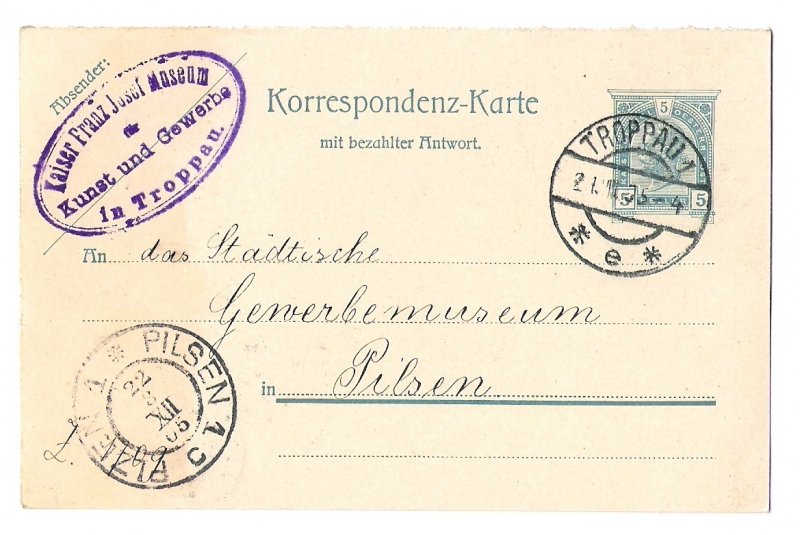 Absender:
Kaiser Franz Josef Museum
für
Kunst und Gewerbe
in Troppau.
Korrespondenz-Karte
mit bezahlter Antwort.
5
5 5
TROPPAU 1
21. 4
* e *
An das Städtische
Gewerbemuseum
in Pilsen
* PILSEN 1 PLZEŇ 1
22
XII
05
Z.